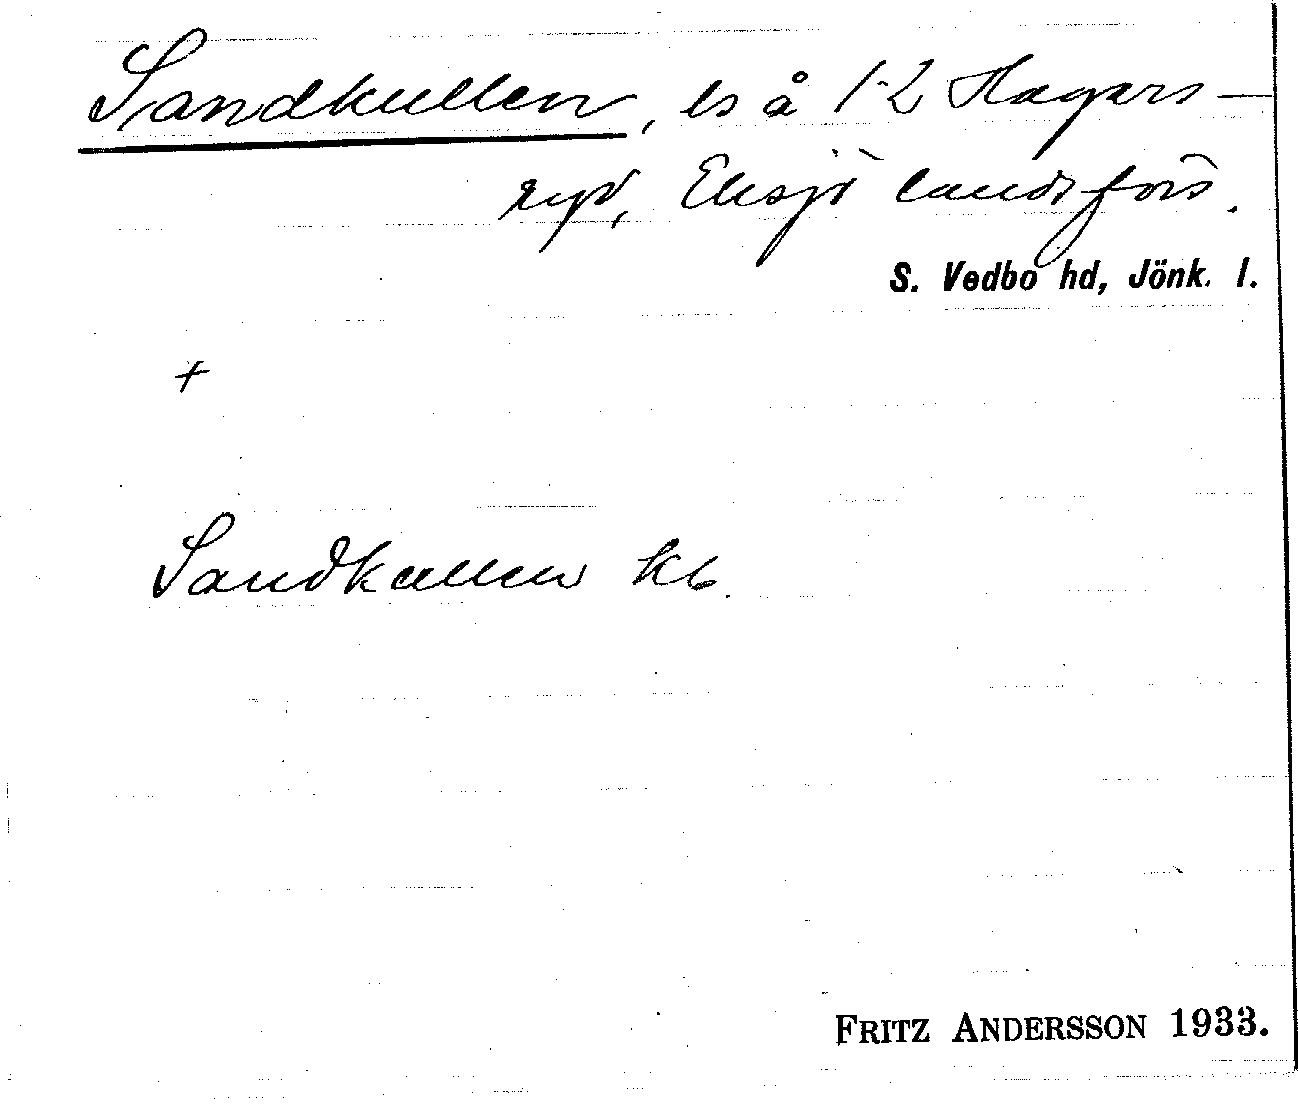 Sandkullen, ls å 1-2 Hagars-
ryd, Eksjö landsförs.
S. Vedbo hd, Jönk. l.
+
Sandkullen kb.
FRITZ ANDERSSON 1933.